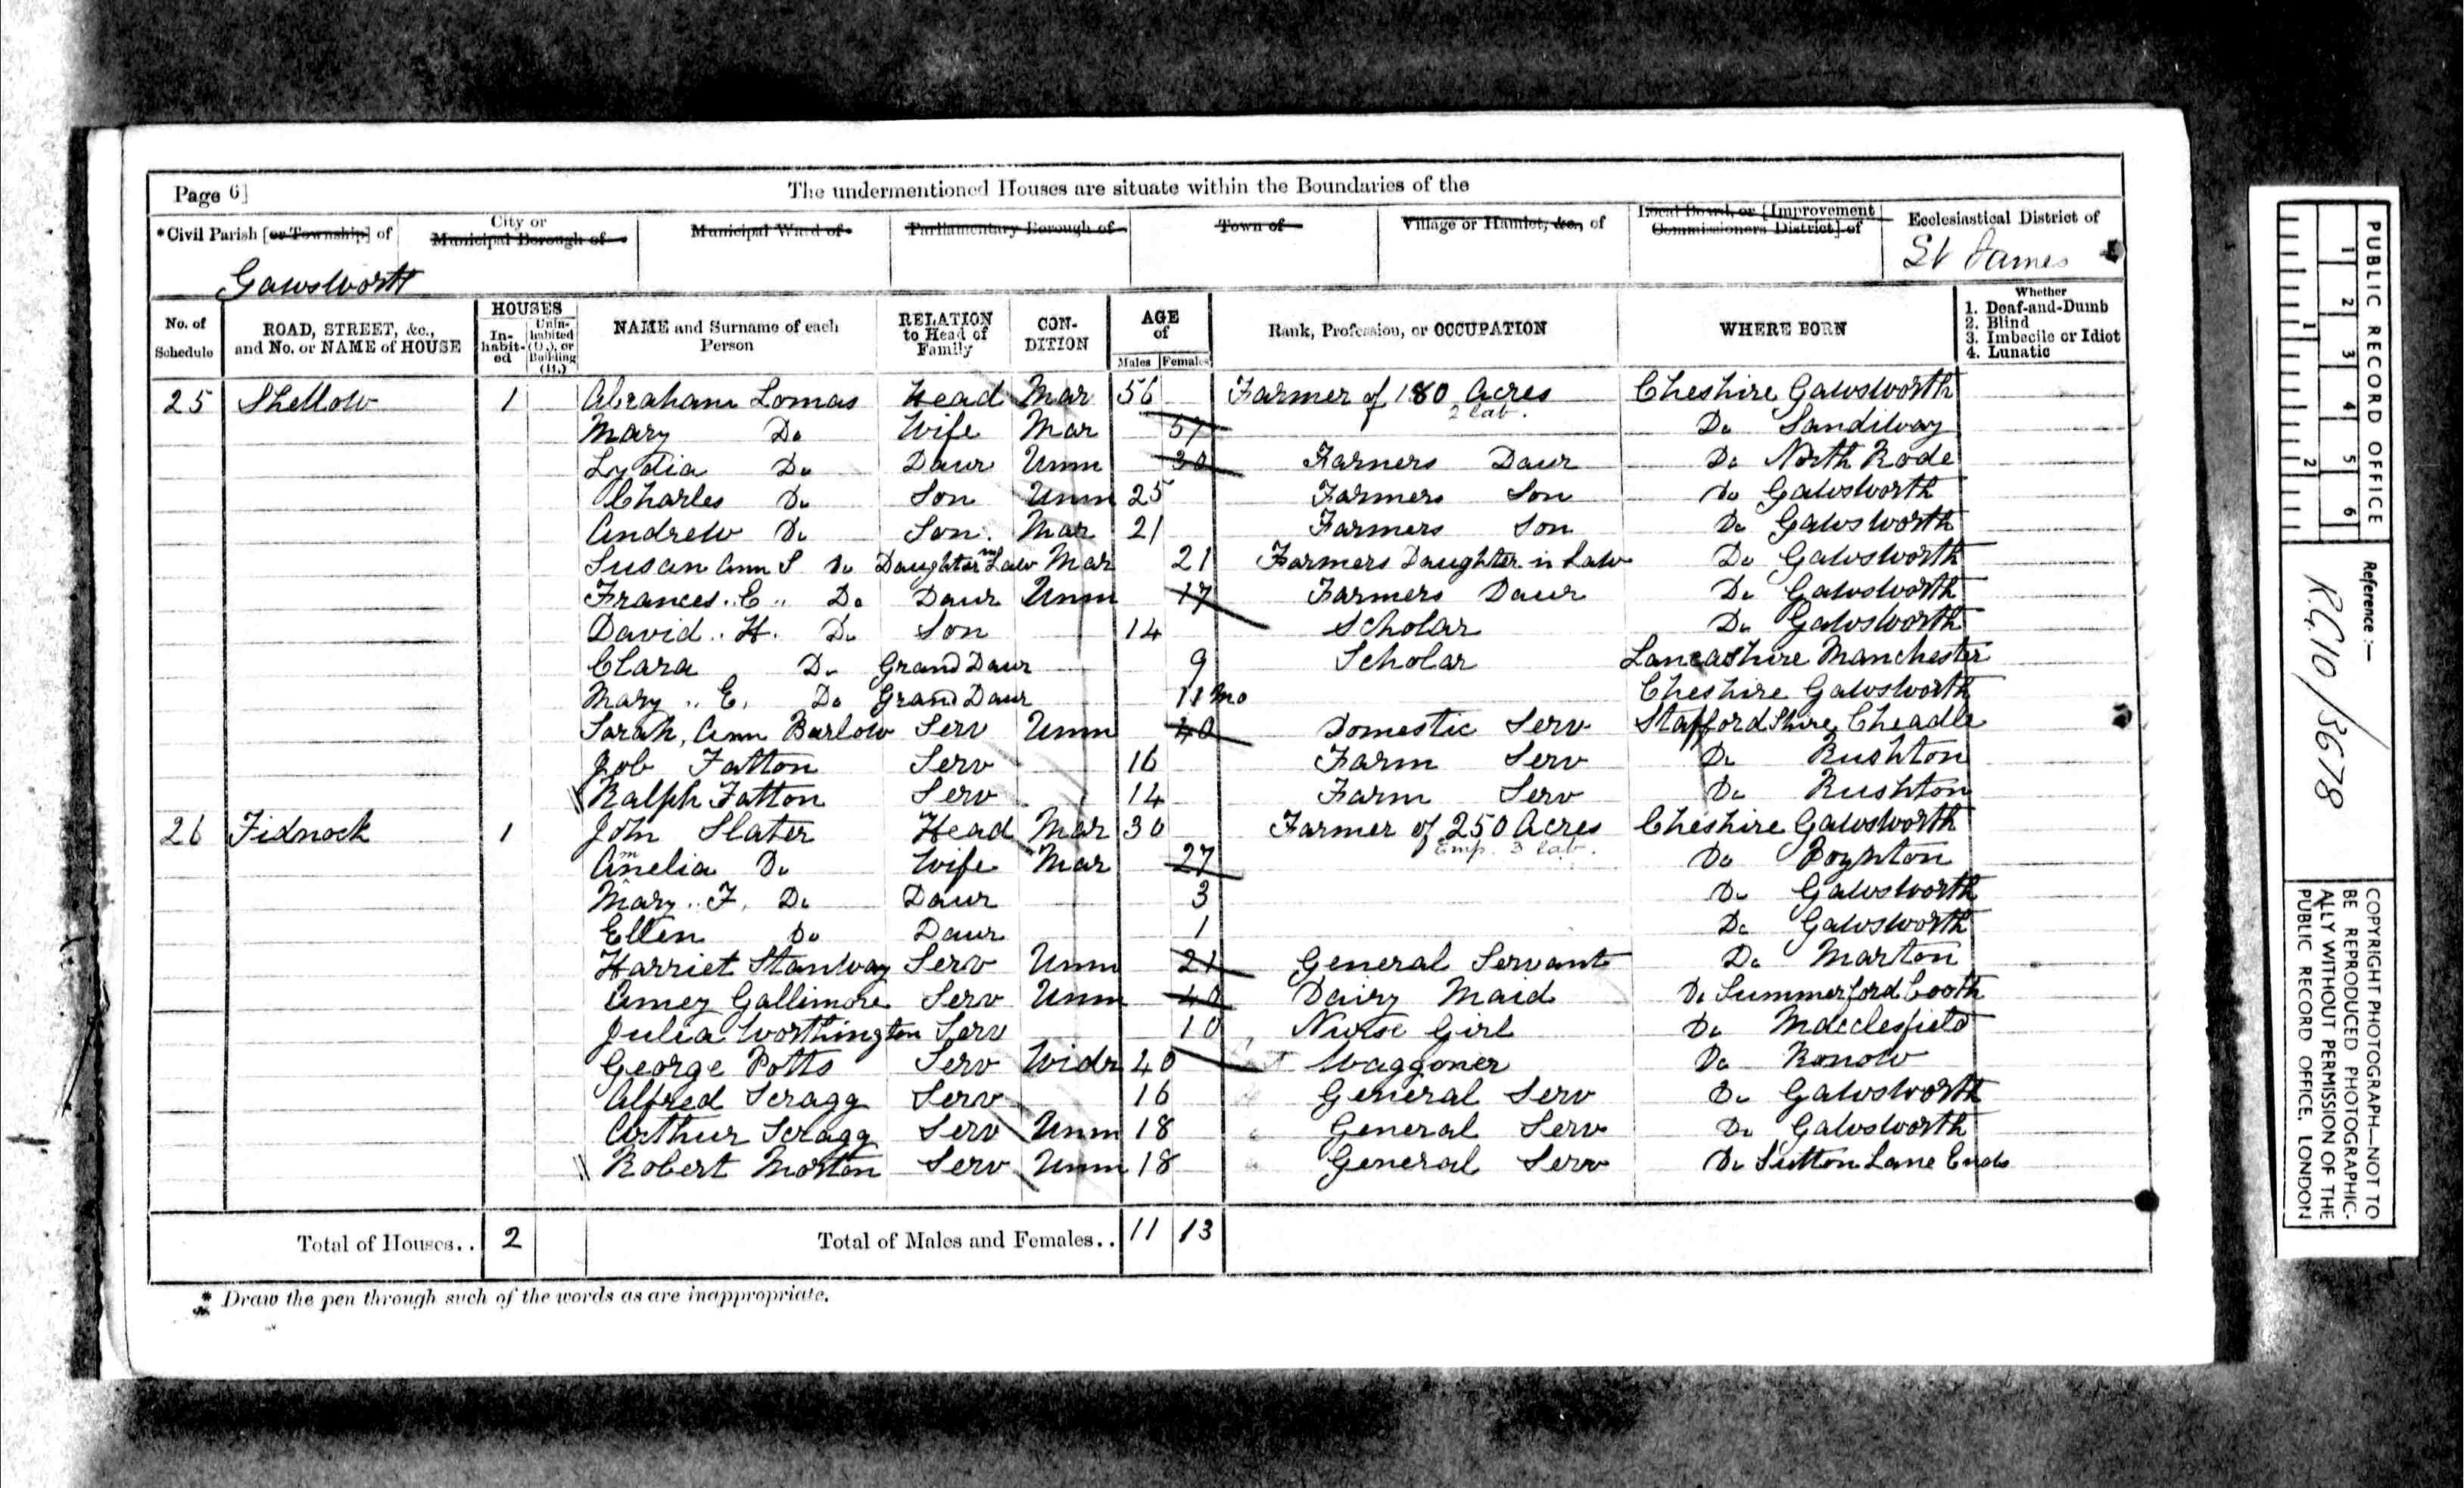 Page 6]
The undermentioned Houses are situate within the Boundaries of the
*Civil Parish [or Township] of
City or Municipal Borough of
Municipal Ward of
Parliamentary Borough of
Town of
Village or Hamlet, &c., of
Local Board, or [Improvement Commissioners District] of
Ecclesiastical District of
Gawsworth
St James
No. of Schedule
ROAD, STREET, &c., and No. or NAME of HOUSE
HOUSES
In-habit-ed
Unin-habited (U.), or Building (B.)
NAME and Surname of each Person
RELATION to Head of Family
CON-DITION
AGE of
Males
Females
Rank, Profession, or OCCUPATION
WHERE BORN
Whether
1. Deaf-and-Dumb
2. Blind
3. Imbecile or Idiot
4. Lunatic
25 Shellow 1 Abraham Lomas Head Mar 56 Farmer of 180 Acres Cheshire Gawsworth
2 lab.
Mary Do Wife Mar 57 Do Sandiway
Lydia Do Daur Unm 30 Farmers Daur Do North Rode
Charles Do Son Unm 25 Farmers Son Do Gawsworth
Andrew Do Son Mar 21 Farmers Son Do Gawsworth
Susan Ann S Do Daughter in Law Mar 21 Farmers Daughter in Law Do Gawsworth
Frances. E.. Do Daur Unm 17 Farmers Daur Do Gawsworth
David.. H. Do Son 14 Scholar Do Gawsworth
Clara Do Grand Daur 9 Scholar Lancashire Manchester
Mary.. E. Do Grand Daur 11 mo Cheshire Gawsworth
Sarah, Ann Barlow Serv Unm 40 Domestic Serv Staffordshire Cheadle
Job Fatton Serv 16 Farm Serv Do Rushton
Ralph Fatton Serv 14 Farm Serv Do Rushton
26 Fidnock 1 John Slater Head Mar 30 Farmer of 250 Acres Cheshire Gawsworth
Emp. 3 lab.
Amelia Do Wife Mar 27 Do Poynton
Mary.. F. Do Daur 3 Do Gawsworth
Ellen Do Daur 1 Do Gawsworth
Harriet Stanway Serv Unm 21 General Servant Do Marton
Amey Gallimore Serv Unm 40 Dairy Maid Do Summerford Booth
Julia Worthington Serv 10 Nurse Girl Do Macclesfield
George Potts Serv Widr 40 Waggoner Do
Alfred Scragg Serv 16 General Serv Do Gawsworth
Arthur Scragg Serv Unm 18 General Serv Do Gawsworth
Robert Morton Serv Unm 18 General Serv Do Sutton Lane Ends
Total of Houses.. 2
Total of Males and Females.. 11 13
* Draw the pen through such of the words as are inappropriate.
PUBLIC RECORD OFFICE
1 2 3 4 5 6
1 2
Reference :-
R.G.10/3678
COPYRIGHT PHOTOGRAPH—NOT TO
BE REPRODUCED PHOTOGRAPHIC-
ALLY WITHOUT PERMISSION OF THE
PUBLIC RECORD OFFICE, LONDON